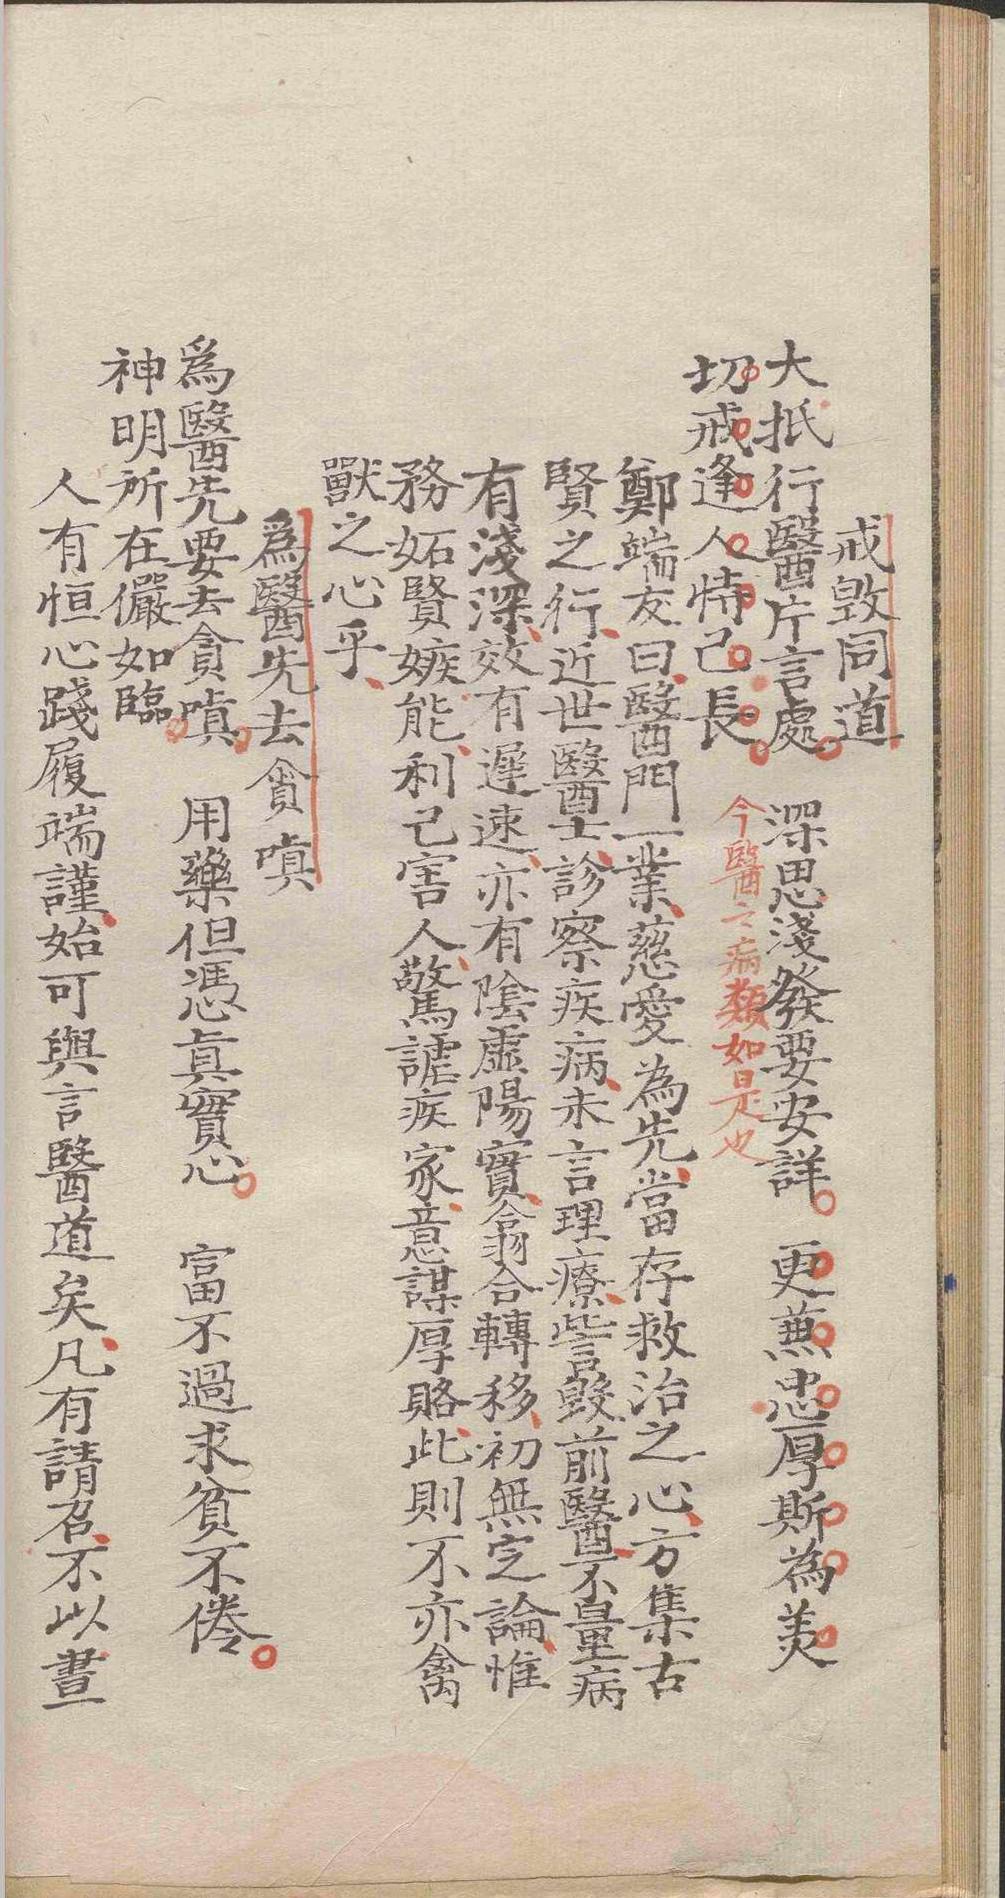 戒毀同道
大抵行醫片言處　深思淺發要安詳　更蕪忠厚斯為美
切戒逢人恃己長
今醫之病類如是也
鄭端友曰醫門一業慈愛為先當存救治之心方集古
賢之行近世醫士診察疾病未言理療訾毀前醫不量病
有淺深效有遲速亦有陰虛陽實翕合轉移初無定論惟
務妬賢嫉能利己害人驚謔疾家意謀厚賂此則不亦禽
獸之心乎
爲醫先去貪嗔
爲醫先要去貪嗔　用藥但憑眞實心　富不過求貧不倦
神明所在儼如臨
人有恒心踐履端謹始可與言醫道矣凡有請召不以晝